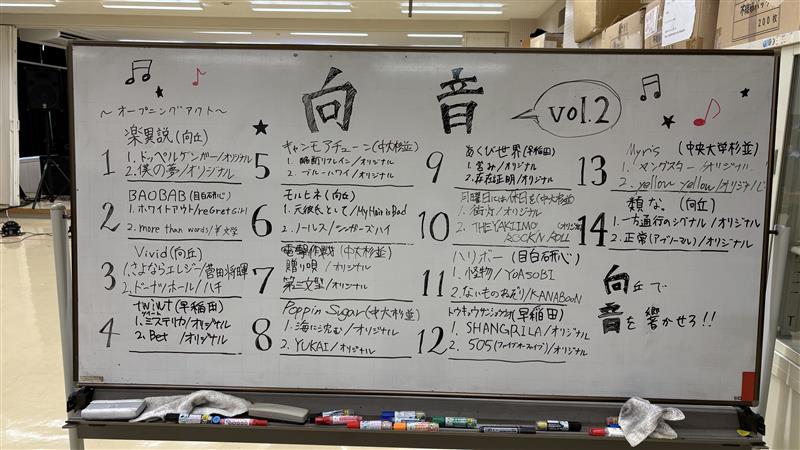 向音 vol.2
～オープニングアクト～
1 楽異説(向丘)
1. ドッペルゲンガー/オリジナル
2. 僕の夢/オリジナル
2 BAOBAB(目白研心)
1. ホワイトアウト/reGretGirl
2. more than words/羊文学
3 Vivid(向丘)
1. さよならエレジー/菅田将暉
2. ドーナツホール/ハチ
4 twilut(早稲田)
1. ミステリカ/オリジナル
2. Bet /オリジナル
5 キャンモアチューン(中大杉並)
1. 踏断リフレイン/オリジナル
2. ブルーハワイ/オリジナル
6 モルヒネ(向丘)
1. 元彼氏として/My Hair is Bad
2. ノールス/シンガーズハイ
7 電撃作戦(中大杉並)
贈り唄 /オリジナル
第三文型/オリジナル
8 Poppin Sugar(中大杉並)
1. 海に沈む/オリジナル
2. YUKAI/オリジナル
9 あくび世界(早稲田)
1. 営み/オリジナル
2. 存在証明/オリジナル
10 月曜日には休日を(中大杉並)
1. 街灯/オリジナル
2. THE YAKIIMO ROCK N ROLL
11 ハリボー(目白研心)
1. 怪物/YOASOBI
2. ないものねだり/KANABOON
12 トウキョウサンショウウオ(早稲田)
1. SHANGRILA/オリジナル
2. 505(ファイブオーファイブ)/オリジナル
13 Myris (中央大学杉並)
1. ヤングスター/オリジナル
2. yellow yellow/オリジナル
14 類な。(向丘)
1. 一方通行のシグナル/オリジナル
2. 正常(アブノーマル)/オリジナル
向丘で
音を響かせろ!!
200枚